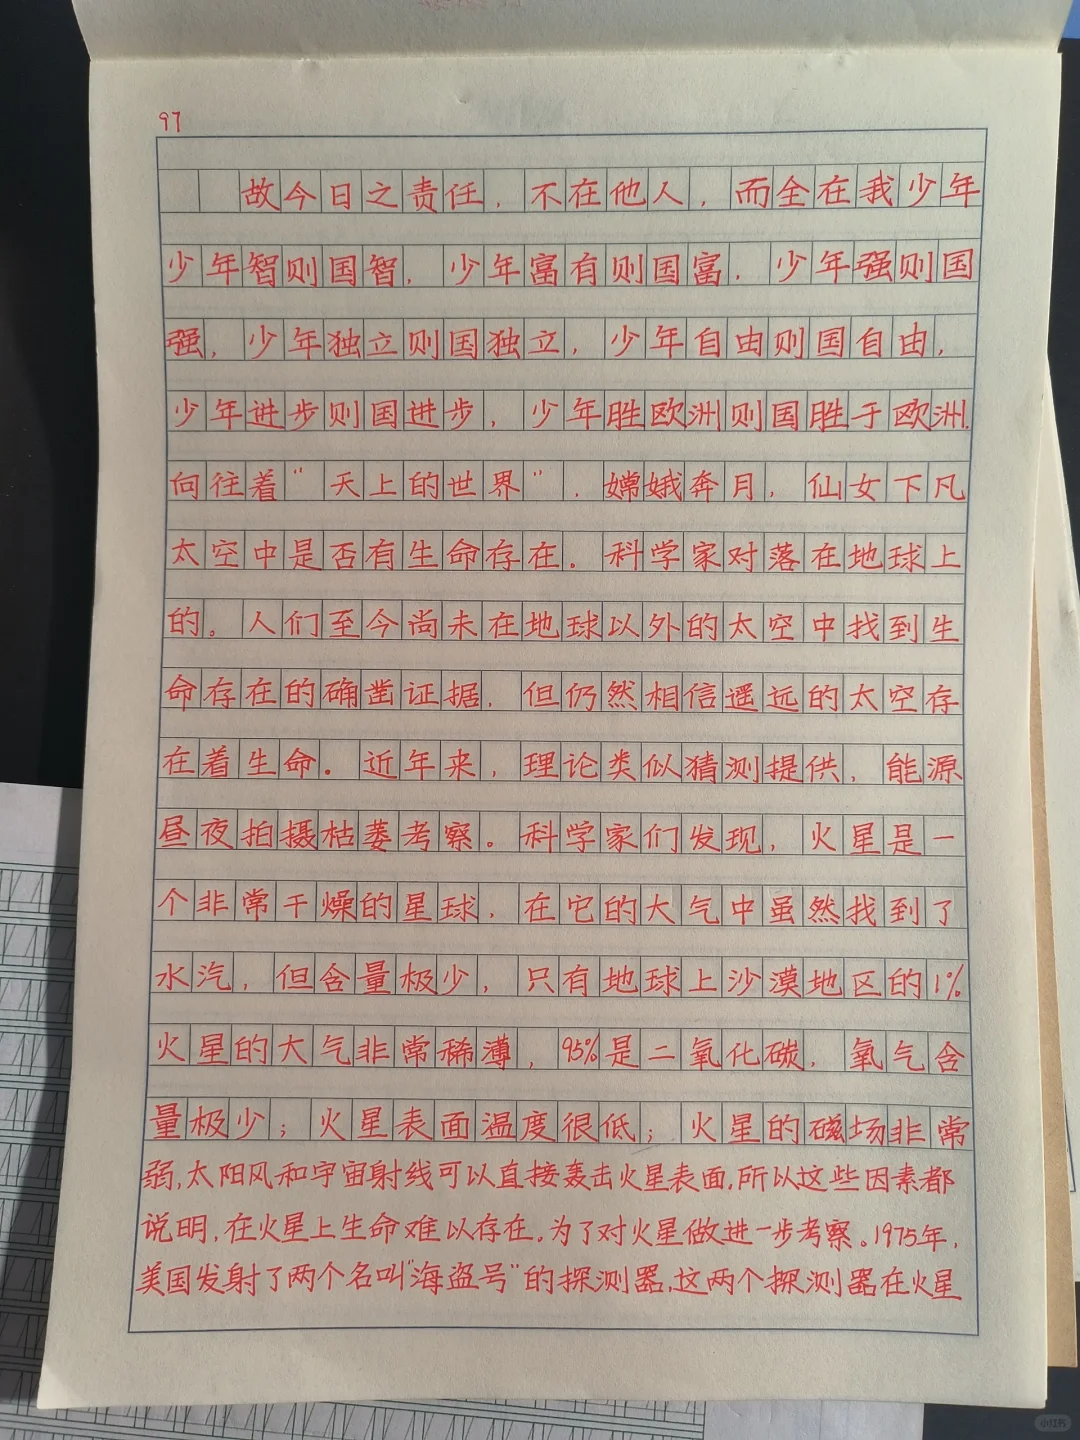 97
故今日之责任，不在他人，而全在我少年
少年智则国智，少年富有则国富，少年强则国
强，少年独立则国独立，少年自由则国自由，
少年进步则国进步，少年胜欧洲则国胜于欧洲.
向往着“天上的世界”，嫦娥奔月，仙女下凡
太空中是否有生命存在。科学家对落在地球上
的。人们至今尚未在地球以外的太空中找到生
命存在的确凿证据，但仍然相信遥远的太空存
在着生命。近年来，理论类似猜测提供，能源
昼夜拍摄枯萎考察。科学家们发现，火星是一
个非常干燥的星球，在它的大气中虽然找到了
水汽，但含量极少，只有地球上沙漠地区的1%
火星的大气非常稀薄，95%是二氧化碳，氧气含
量极少；火星表面温度很低；火星的磁场非常
弱,太阳风和宇宙射线可以直接轰击火星表面,所以这些因素都
说明,在火星上生命难以存在。为了对火星做进一步考察。1975年,
美国发射了两个名叫“海盗号”的探测器,这两个探测器在火星
小红书